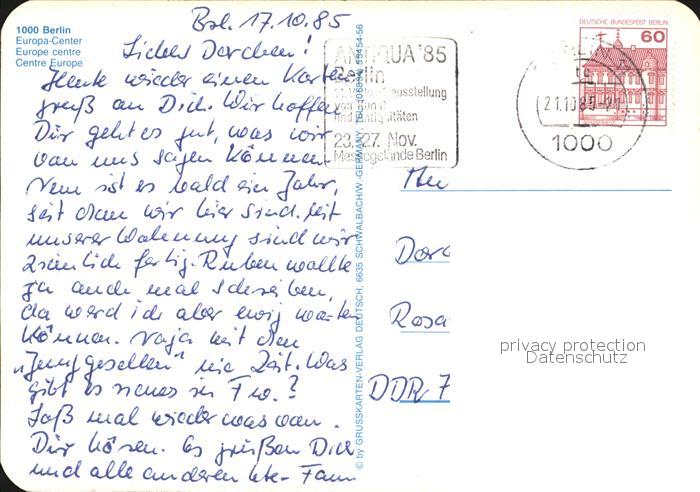 1000 Berlin
Europa-Center
Europe centre
Centre Europe
Bln. 17.10.85
Liebes Dorchen!
Heute wieder einen Karten
gruß an Dich. Wir hoffen
Dir geht es gut, was wir
von uns sagen können.
Nun ist es bald ein Jahr,
seit dem wir hier sind. Mit
unserer Wohnung sind wir
ziemlich fertig. Ruben wollte
ja auch mal schreiben,
da werd ich aber ewig warten
können. Naja mit den
„Junggesellen" nie Zeit. Was
gibt es neues in Fw.?
Laß mal wieder was von
Dir hören. Es grüßen Dich
und alle anderen Fam
© by GRUSSKARTEN-VERLAG DEUTSCH, 6635 SCHWALBACH/W.-GERMANY, TEL.
ANTIQUA '85
Berlin
ausstellung
von Kunst
und Antiquitäten
23.-27. Nov.
Messegelände Berlin
DEUTSCHE BUNDESPOST BERLIN
60
21.10.85
1000
An
Dor
Rosa
DDR 7
privacy protection
Datenschutz